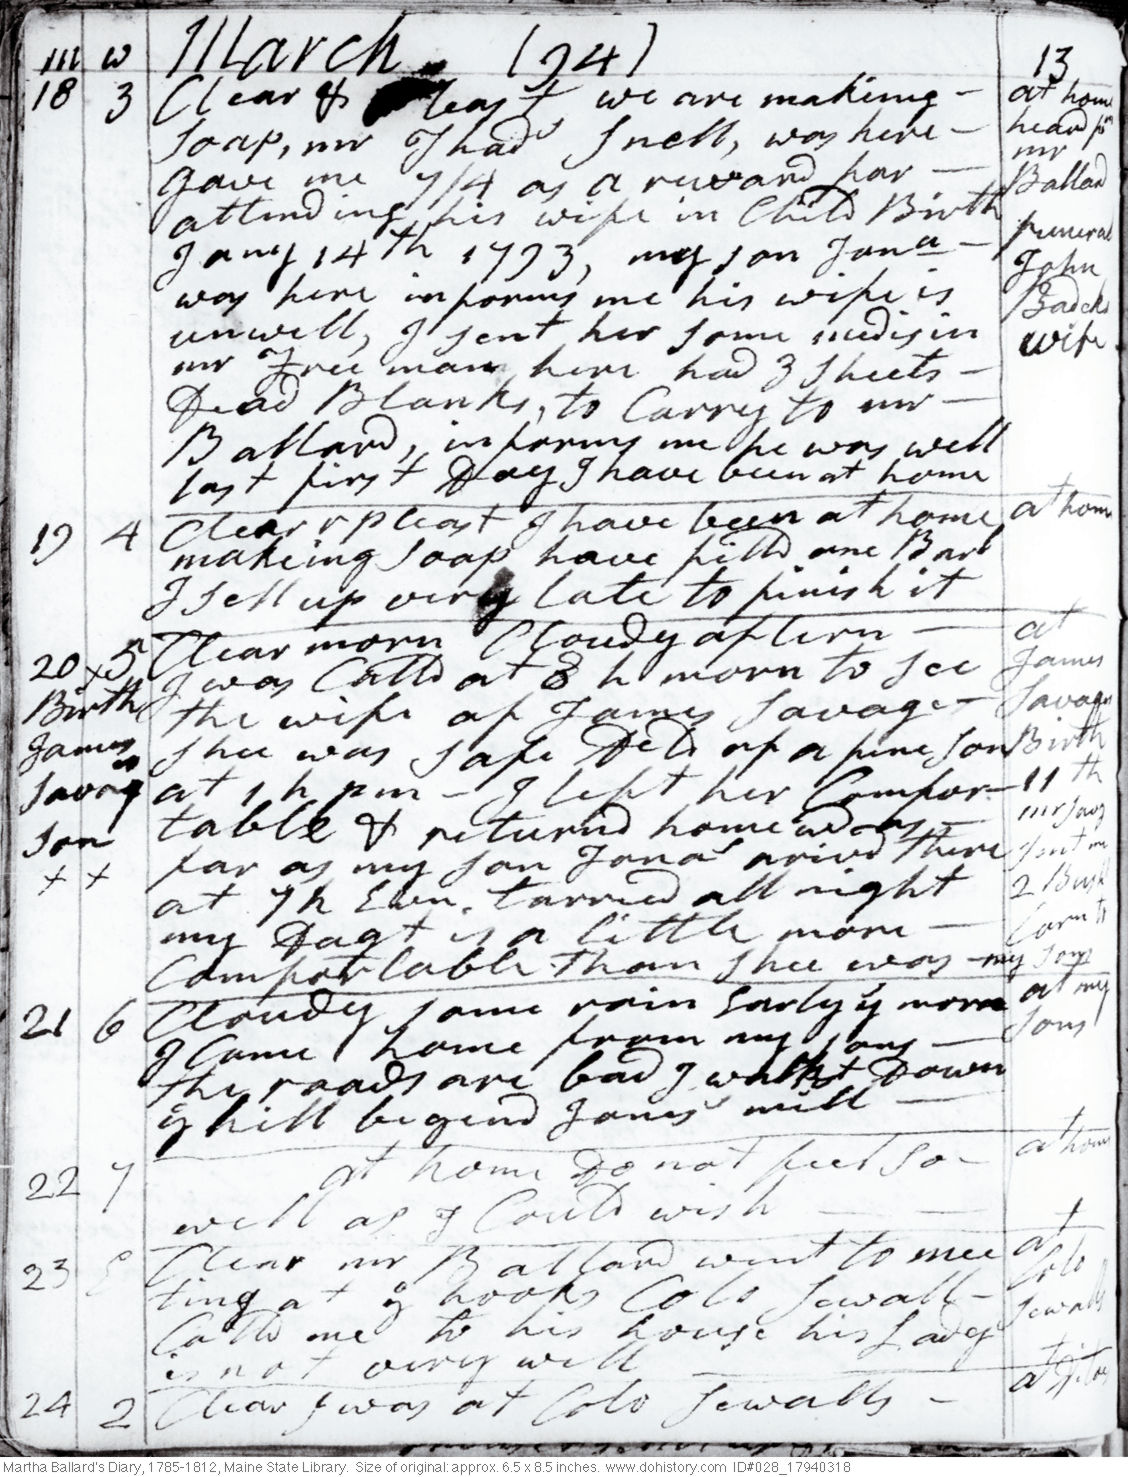 m w March [94] 13
18 3 Clear & Pleast we are making - at home
Soap, mr Thads Snell, was here - heard fm
Gave me 7/4 as a reward for - mr Ballard
attending his wife in Child Birth
Jany 14th 1793, my son Jona - funeral
was here informs me his wife is John
unwell, I sent her some medisin Badcks
mr Freeman here had 3 Sheets - wife
Dead Blanks, to Carry to mr -
Ballard, informs me he was well
last first Day I have been at home
19 4 Clear & pleast I have been at home at home
makeing Soap have filld one Barl
I sett up very late to finish it
20 x 5 Clear morn Cloudy aftern - at
I was Calld at 8 h morn to see James
Birth the wife of James Savage - Savages
James shee was safe Deld of a fine son Birth
Savag at 1 h pm - I left her Comfor- 11th
Son table & returnd home wd as - mr Savg
x x far as my son Jonas arivd there sent me
at 7h Evn. tarried all night 2 Bush
my Dagt is a little more - Corn to
Comfortable than shee was - my sons
21 6 Cloudy some rain Early y morn at my
I Came home from my sons - sons
the roads are bad I walkt Down
y hill begend Jones' mill -
22 7 at home Do not feel so - at home
well as I Could wish - - -
23 E Clear mr Ballard went to mee at
ting at y hooks Colo Sewall - Colo
Calld me to his house his Lady Sewalls
is not very well
24 2 Clear I was at Colo Sewalls - at Ditos
Martha Ballard's Diary, 1785-1812, Maine State Library. Size of original: approx. 6.5 x 8.5 inches. www.dohistory.com ID#028_17940318